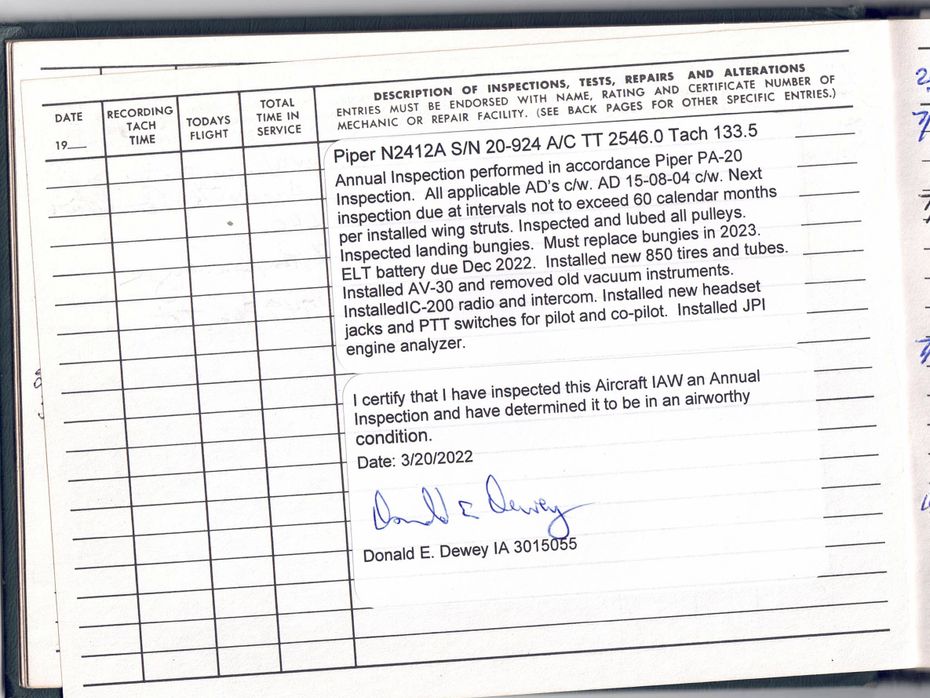 DATE
19
RECORDING
TACH
TIME
TODAYS
FLIGHT
TOTAL
TIME IN
SERVICE
DESCRIPTION OF INSPECTIONS, TESTS, REPAIRS AND ALTERATIONS
ENTRIES MUST BE ENDORSED WITH NAME, RATING AND CERTIFICATE NUMBER OF
MECHANIC OR REPAIR FACILITY. (SEE BACK PAGES FOR OTHER SPECIFIC ENTRIES.)
Piper N2412A S/N 20-924 A/C TT 2546.0 Tach 133.5
Annual Inspection performed in accordance Piper PA-20
Inspection. All applicable AD's c/w. AD 15-08-04 c/w. Next
inspection due at intervals not to exceed 60 calendar months
per installed wing struts. Inspected and lubed all pulleys.
Inspected landing bungies. Must replace bungies in 2023.
ELT battery due Dec 2022. Installed new 850 tires and tubes.
Installed AV-30 and removed old vacuum instruments.
InstalledIC-200 radio and intercom. Installed new headset
jacks and PTT switches for pilot and co-pilot. Installed JPI
engine analyzer.
I certify that I have inspected this Aircraft IAW an Annual
Inspection and have determined it to be in an airworthy
condition.
Date: 3/20/2022
Donald E Dewey
Donald E. Dewey IA 3015055